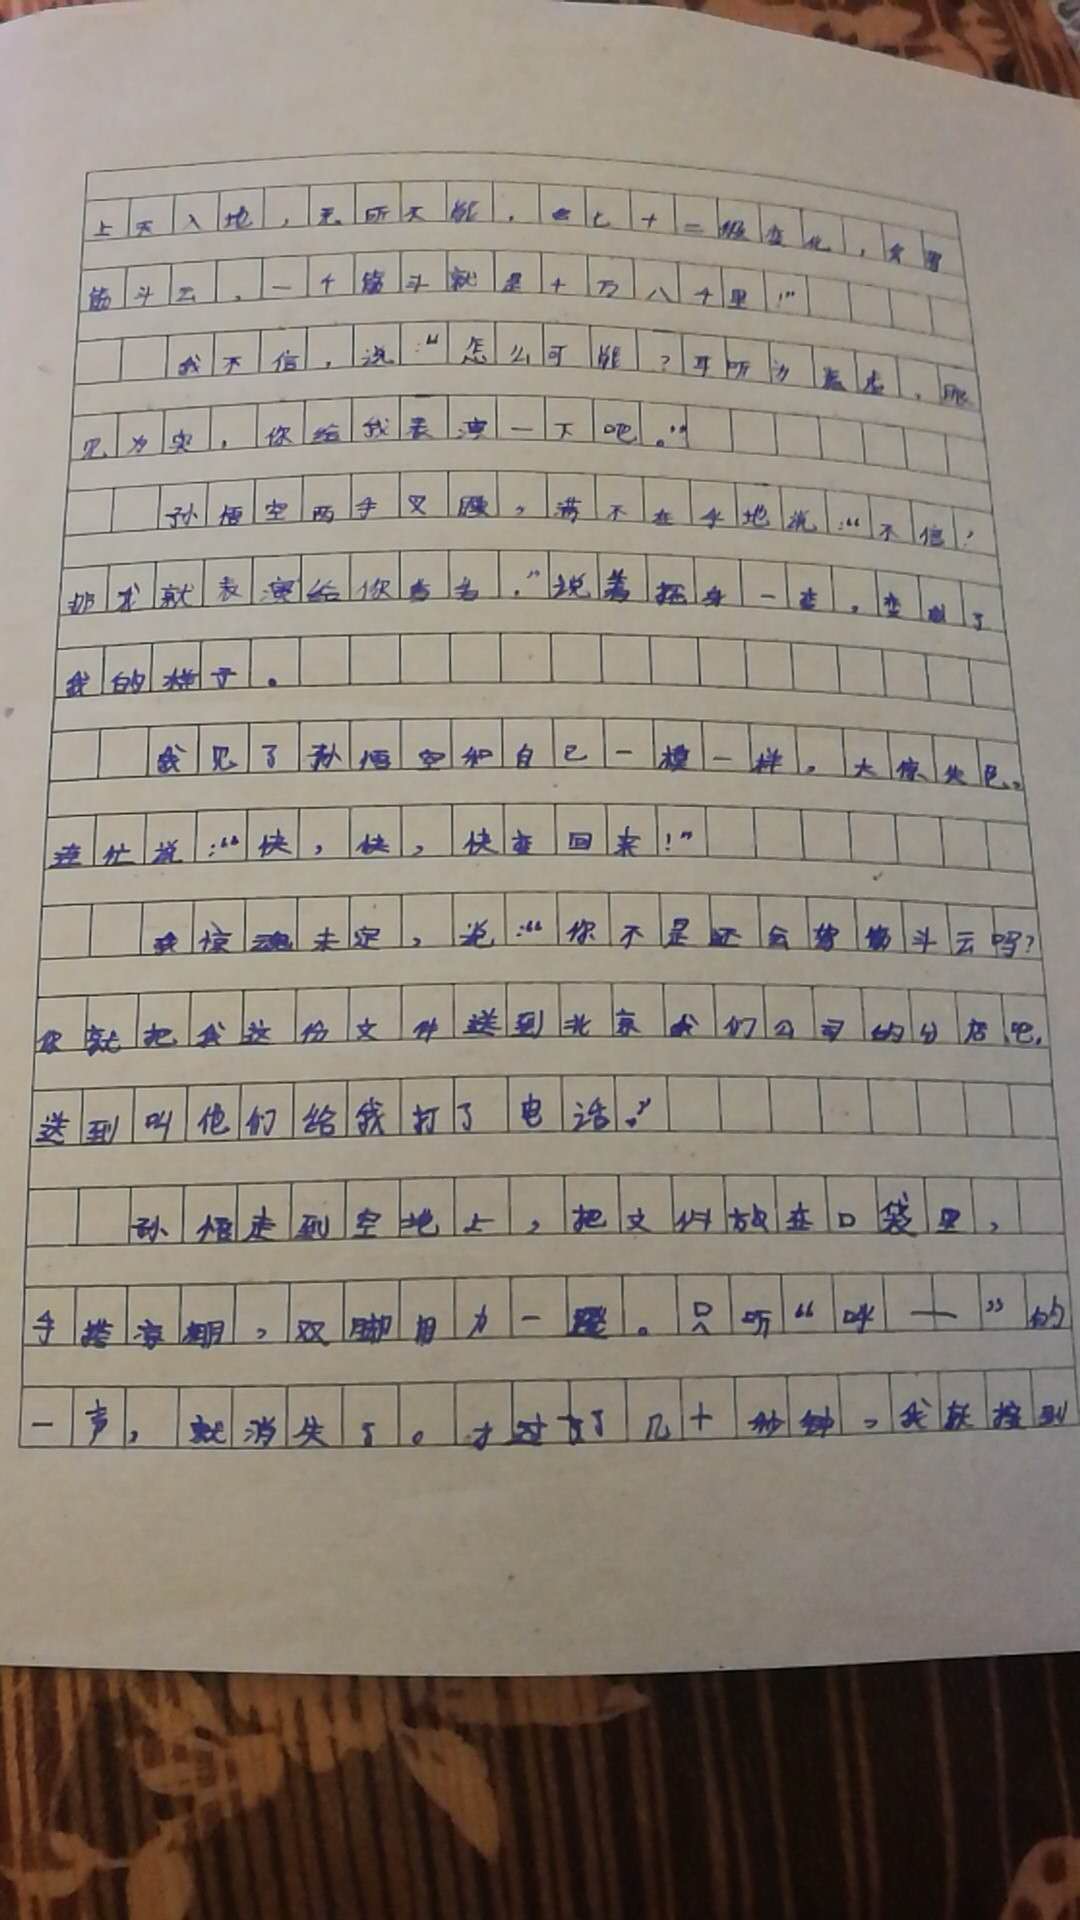 上天入地，无所不能，会七十二般变化，会翻
筋斗云，一个筋斗就是十万八千里！”
我不信，说：“怎么可能？耳听为虚，眼
见为实，你给我表演一下吧。”
孙悟空两手叉腰，满不在乎地说：“不信！
那我就表演给你看看。”说着摇身一变，变成了
我的样子。
我见了孙悟空和自己一模一样，大惊失色。
连忙说：“快，快，快变回来！”
我惊魂未定，说：“你不是还会筋斗云吗？
你就把我这份文件送到北京我们公司的分店吧，
送到叫他们给我打了电话。”
孙悟走到空地上，把文件放在口袋里，
手搭凉棚，双脚用力一蹬。只听“呼——”的
一声，就消失了。才过了几十秒钟，我就接到